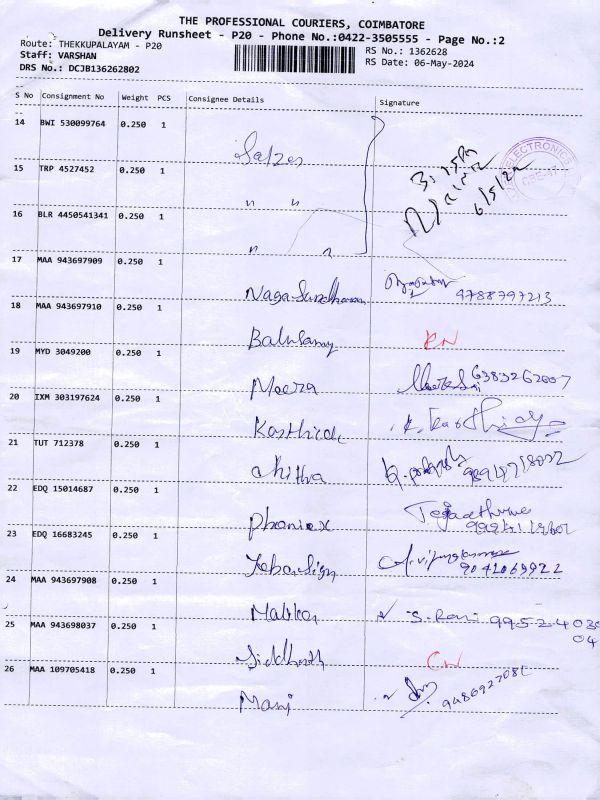 THE PROFESSIONAL COURIERS, COIMBATORE
Delivery Runsheet - P20 - Phone No.:0422-3505555 - Page No.:2
Route: THEKKUPALAYAM - P20
RS No.: 1362628
Staff: VARSHAN
RS Date: 06-May-2024
DRS No.: DCJB136262802
S No Consignment No Weight PCS Consignee Details Signature
14 BWI 530099764 0.250 1
ELECTRONICS
15 TRP 4527452 0.250 1 " "
16 BLR 4450541341 0.250 1 " "
17 MAA 943697909 0.250 1 Nagasundharam 9788797213
18 MAA 943697910 0.250 1 Balusamy RN
19 MYD 3049200 0.250 1 Meera 6383262007
20 IXM 303197624 0.250 1 Karthick
21 TUT 712378 0.250 1 Chithra
22 EDQ 15014687 0.250 1 Phoniex
23 EDQ 16683245 0.250 1 9041069922
24 MAA 943697908 0.250 1 S. Rani 99524030 04
25 MAA 943698037 0.250 1 Siddharth CN
26 MAA 109705418 0.250 1 Mani